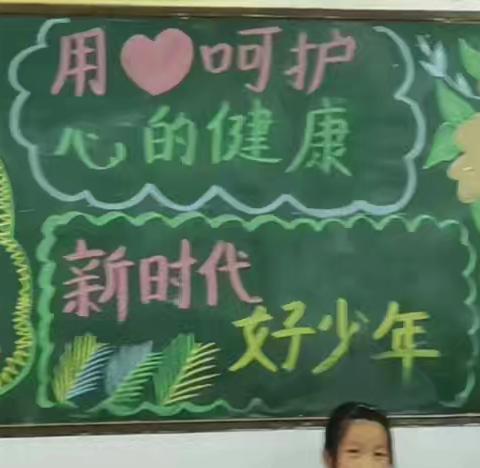 用❤呵护
心的健康
新时代
好少年